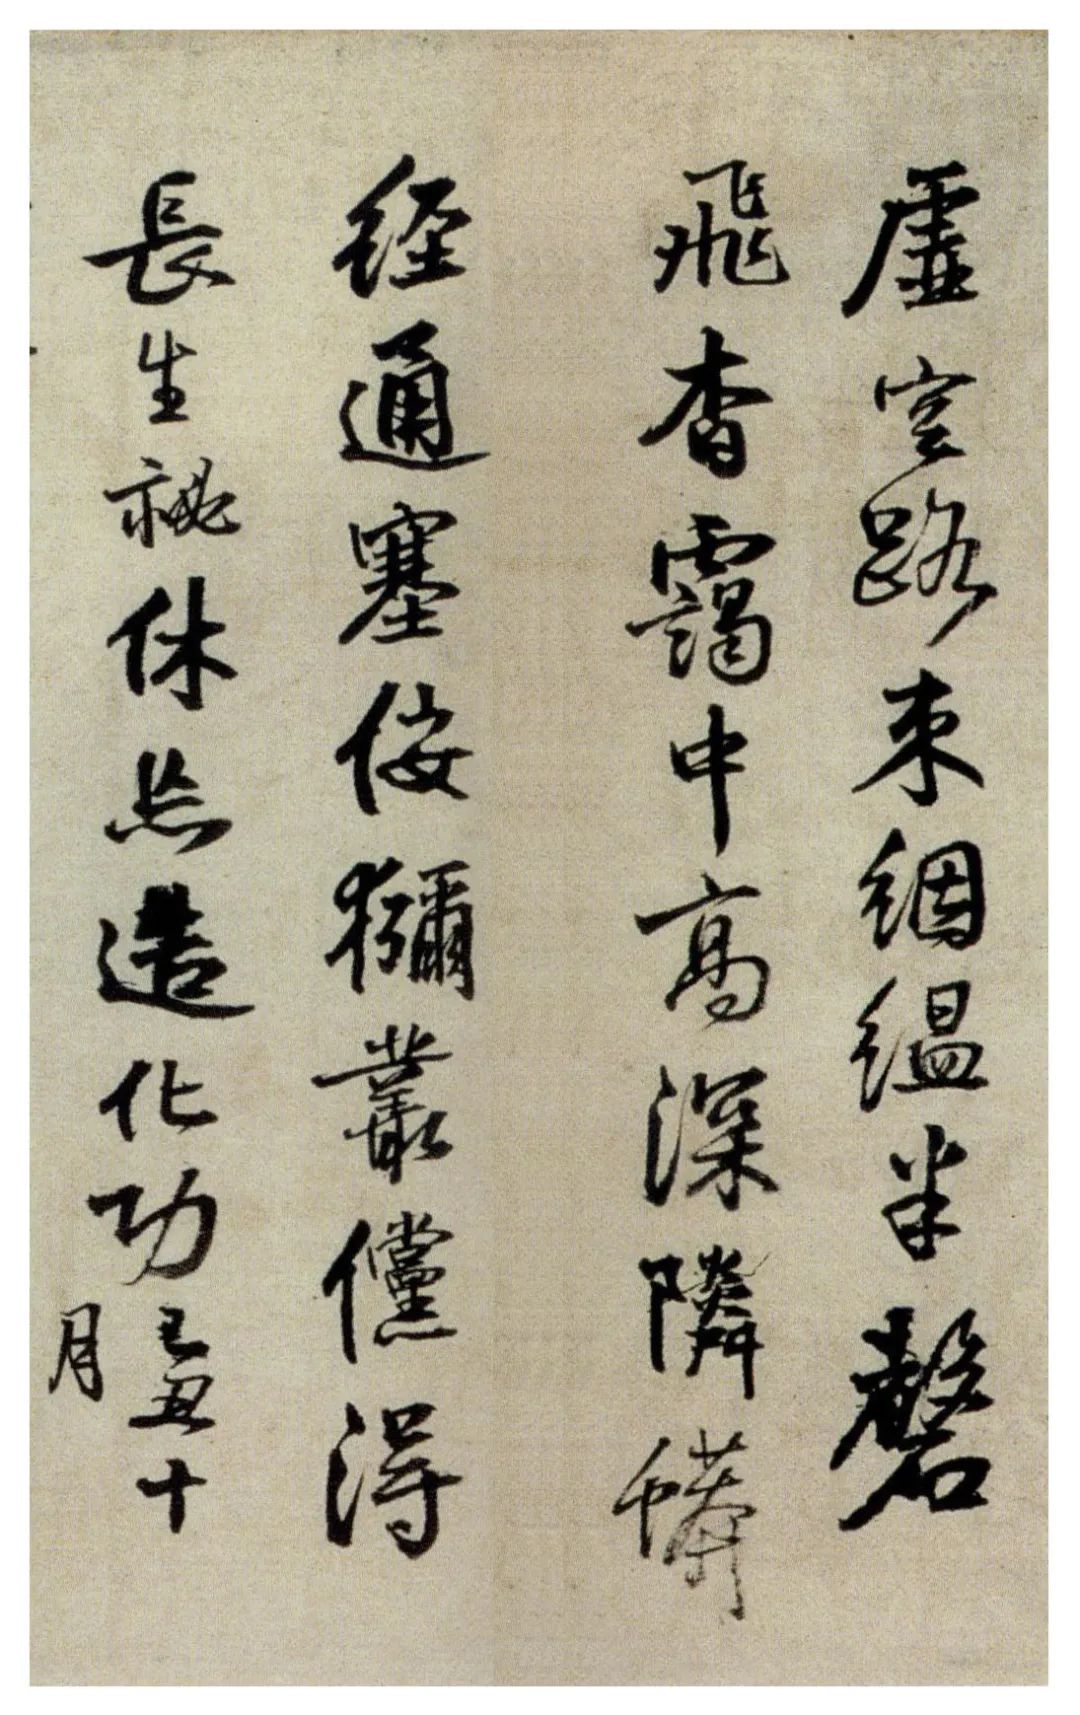 虛空路來絪縕半磬
飛杳靄中高深隣蟒
經通塞佞獼叢儻得
長生祕休忘造化功己丑十
月